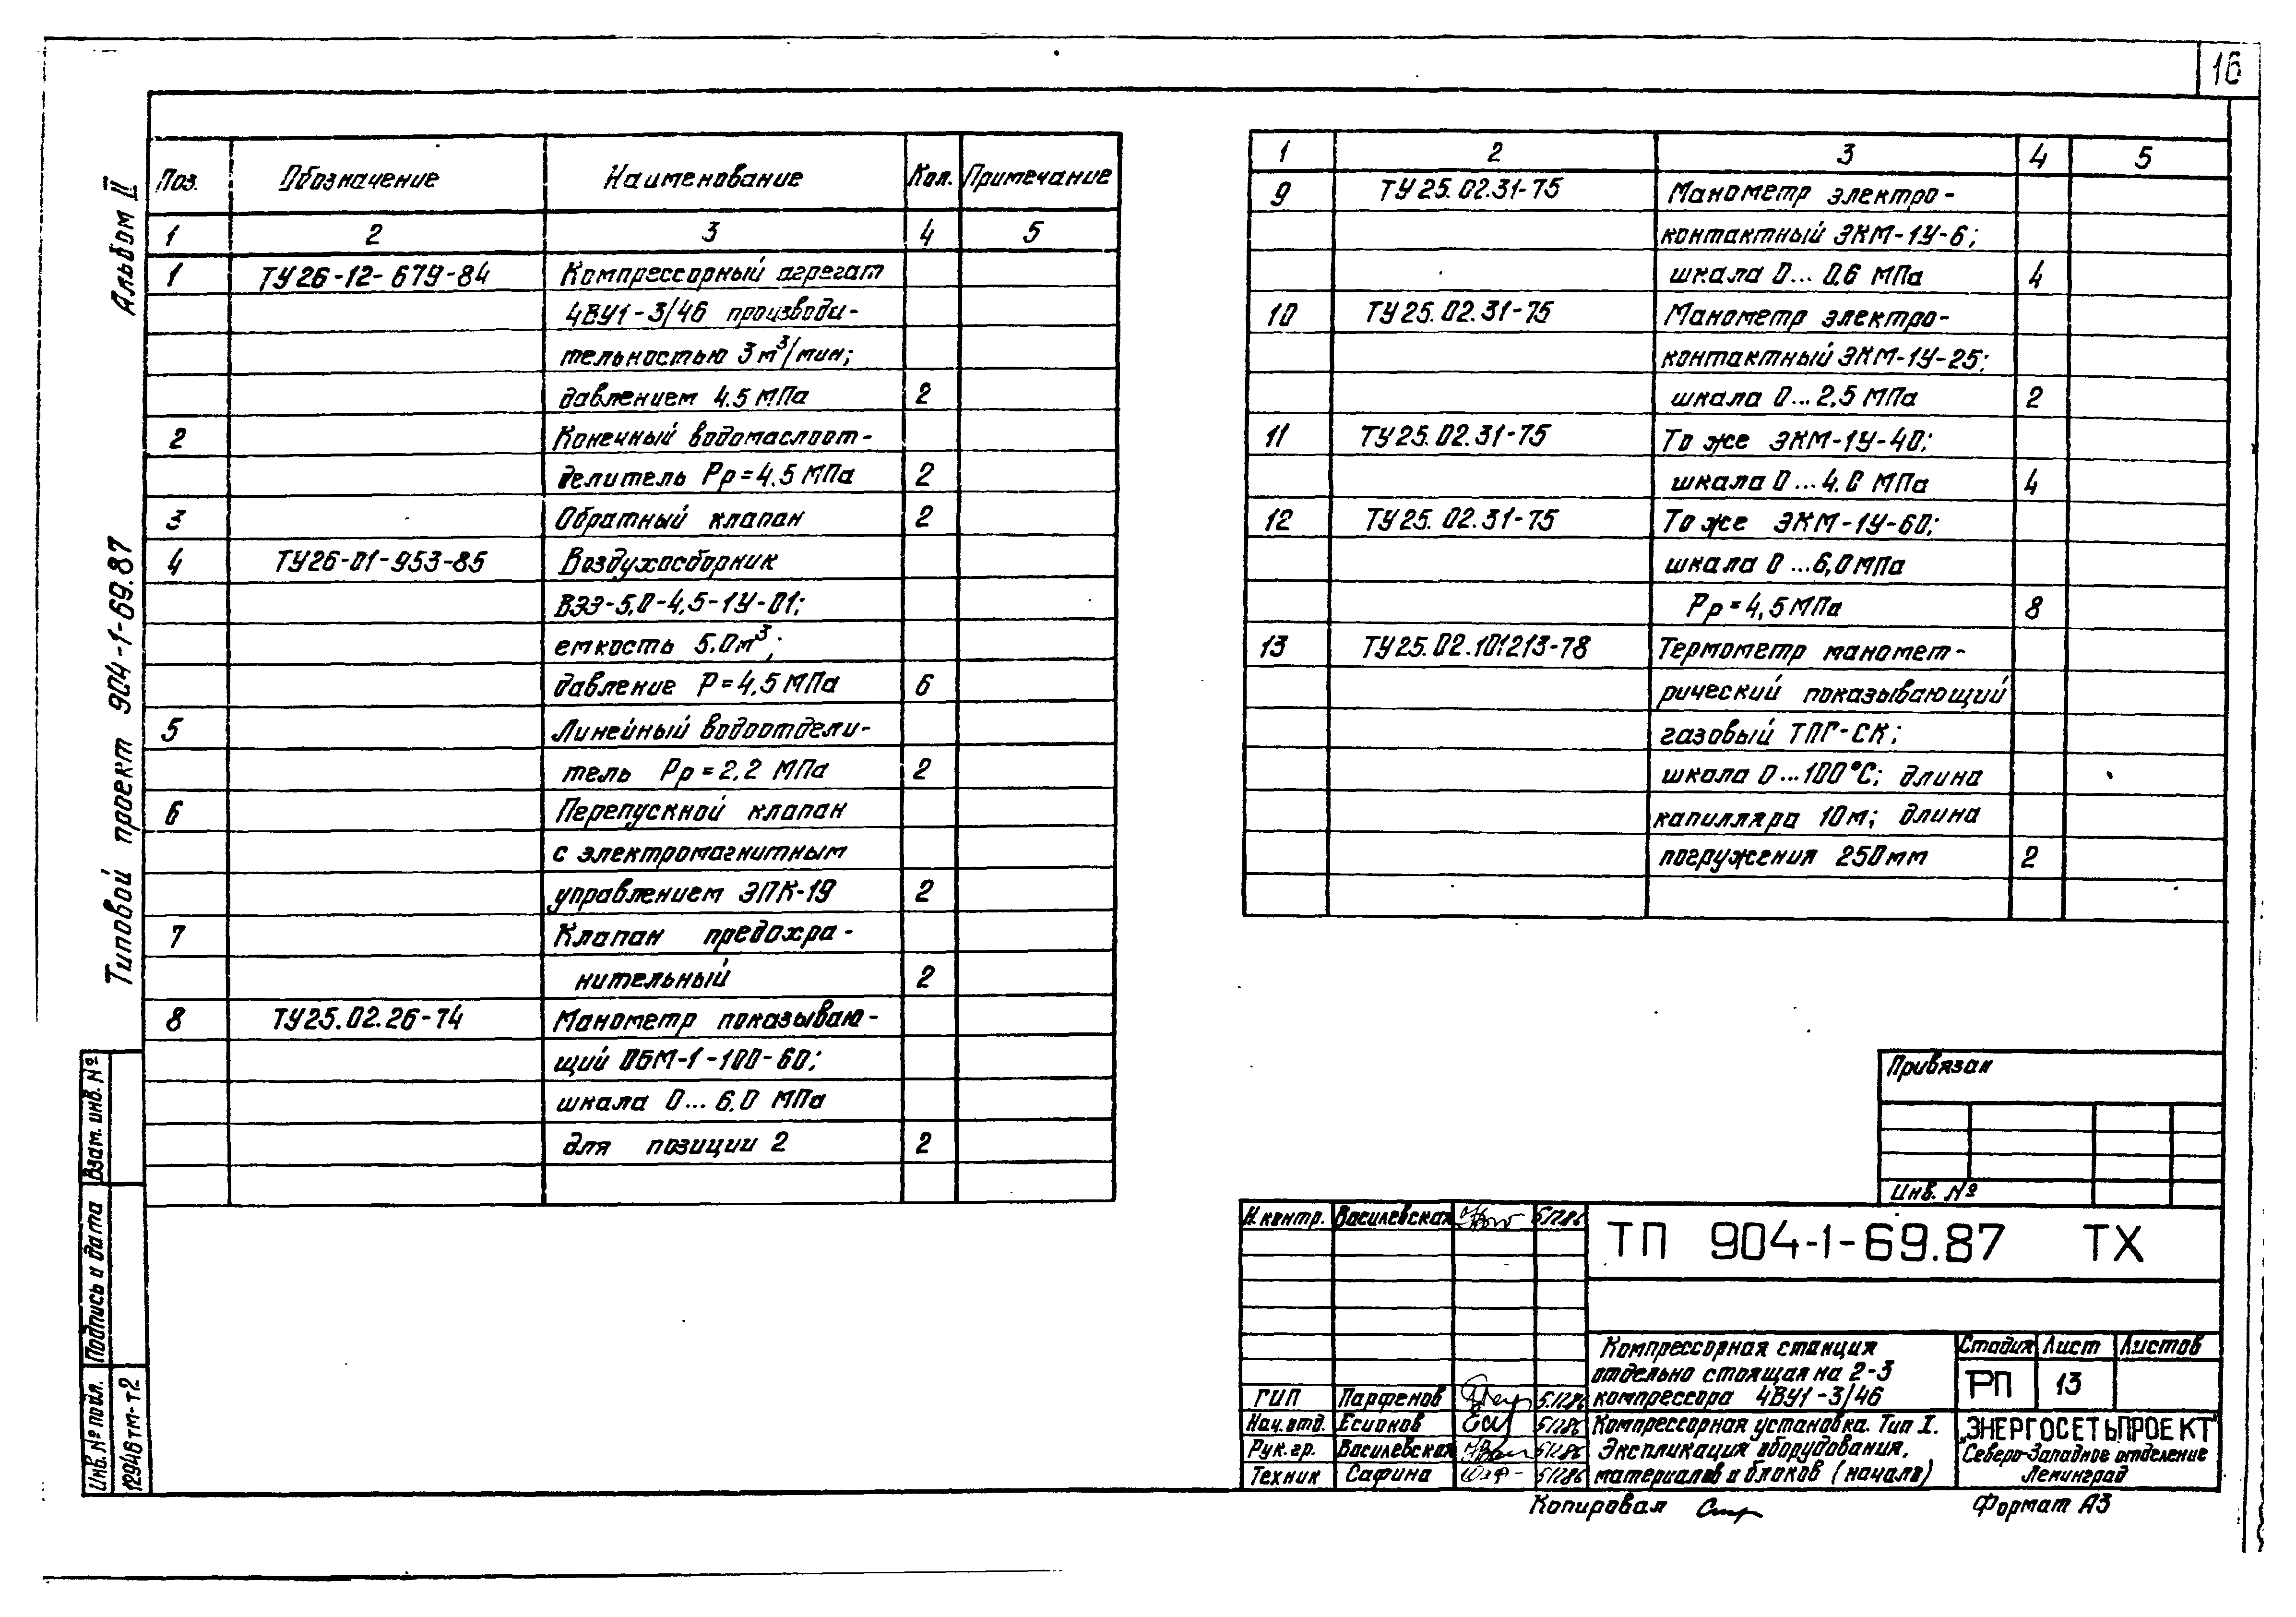 16
Альбом II
Типовой проект 904-1-69.87
Поз. Обозначение Наименование Кол. Примечание
1 2 3 4 5
1 ТУ26-12-679-84 Компрессорный агрегат
4ВУ1-3/46 производи-
тельностью 3м³/мин;
давлением 4.5 МПа 2
2 Конечный водомаслоот-
делитель Рр=4.5 МПа 2
3 Обратный клапан 2
4 ТУ26-01-953-85 Воздухосборник
ВЭЭ-5,0-4,5-1У-01;
емкость 5.0м³;
давление Р=4,5 МПа 6
5 Линейный водоотдели-
тель Рр=2,2 МПа 2
6 Перепускной клапан
с электромагнитным
управлением ЭПК-19 2
7 Клапан предохра-
нительный 2
8 ТУ25.02.26-74 Манометр показываю-
щий ОБМ-1-100-60;
шкала 0... 6.0 МПа
для позиции 2 2
1 2 3 4 5
9 ТУ25.02.31-75 Манометр электро-
контактный ЭКМ-1У-6;
шкала 0... 0.6 МПа 4
10 ТУ25.02.31-75 Манометр электро-
контактный ЭКМ-1У-25;
шкала 0...2,5 МПа 2
11 ТУ25.02.31-75 То же ЭКМ-1У-40;
шкала 0...4.0 МПа 4
12 ТУ25.02.31-75 То же ЭКМ-1У-60;
шкала 0...6,0 МПа
Рр=4,5 МПа 8
13 ТУ25.02.101213-78 Термометр маномет-
рический показывающий
газовый ТПГ-СК;
шкала 0...100°С; длина
капилляра 10м; длина
погружения 250мм 2
Привязан
Инв. №
Взам. инв. №
Подпись и дата
Инв. № подл.
12946тм-т2
Н.контр. Василевская 5.12.86
ТП 904-1-69.87 ТХ
Компрессорная станция
отдельно стоящая на 2-3
компрессора 4ВУ1-3/46
Стадия Лист Листов
РП 13
ГИП Парфенов 5.12.86
Нач.отд. Есионов 5.12.86
Рук.гр. Василевская 5.12.86
Техник Сафина 5.12.86
Компрессорная установка. Тип I.
Экспликация оборудования,
материалов и блоков (начало)
„ЭНЕРГОСЕТЬПРОЕКТ"
Северо-Западное отделение
Ленинград
Копировал Формат А3